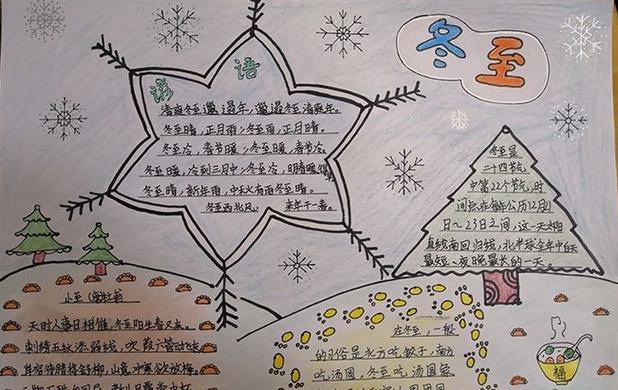 冬至
谚语
清爽冬至邋遢年，邋遢冬至清爽年。
冬至晴，正月雨；冬至雨，正月晴。
冬至冷，春节暖；冬至暖，春节冷。
冬至暖，冷到三月中；冬至冷，明春暖得
冬至晴，新年雨，中秋有雨冬至晴。
冬至西北风，来年干一春。
冬至是
二十四节气
中第22个节气，时
间点在每年公历12月21
日～23日之间，这一天太阳
直射南回归线，北半球全年中白天
最短、夜晚最长的一天。
小至
天时人事日相催，冬至阳生春又来。
刺绣五纹添弱线，吹葭六管动
岸容待腊将舒柳，山意冲寒欲放梅。
在冬至，一般
的习俗是北方吃饺子，南方
吃汤圆，冬至吃汤圆象
福